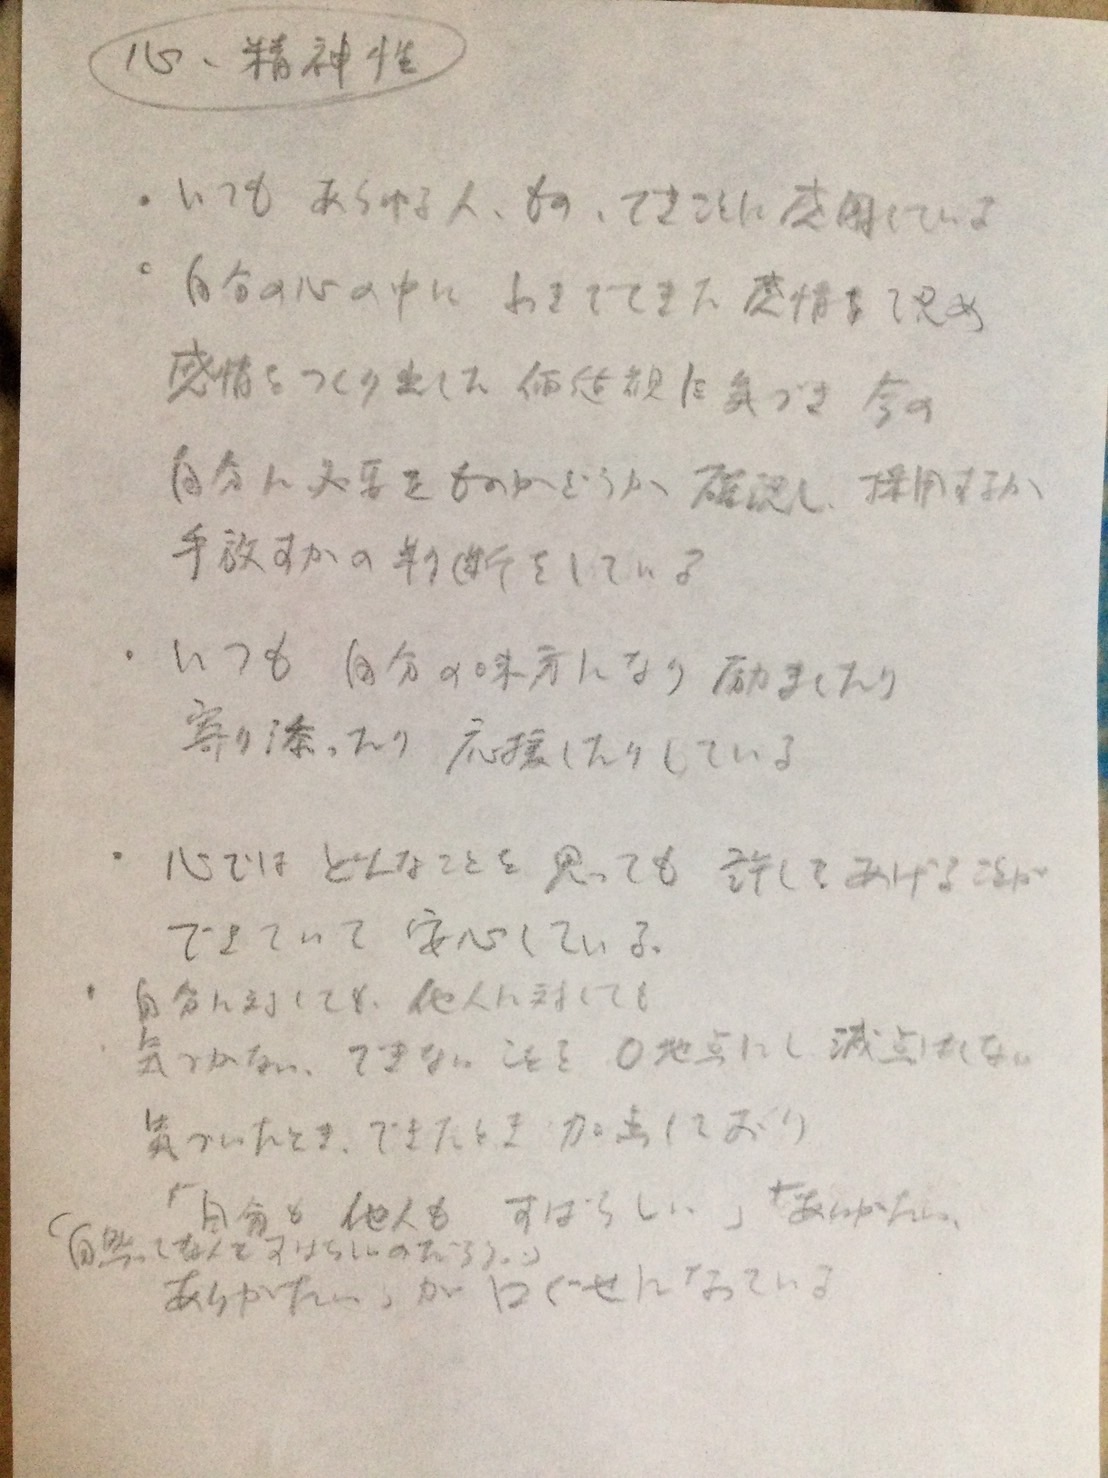 心、精神性
・いつも あらゆる人、もの、できごとに感謝している
・自分の心の中に おきてできた 感情を認め
感情をつくり出した 価値観に気づき 今の
自分に必要なものかどうか 確認し、採用するか
手放すかの判断をしている
・いつも 自分の味方になり 励ましたり
寄り添ったり 応援したりしている
・心では どんなことを 思っても 許してあげることが
できていて 安心している。
・自分に対しても、他人に対しても
気づかない、できないことを 0地点にし 減点はしない
気づいたとき、できたとき 加点しており
「自分も 他人も すばらしい。」「ありがたい、
(「自然ってなんてすばらしいのだろう。」
ありがたい」が口ぐせになっている